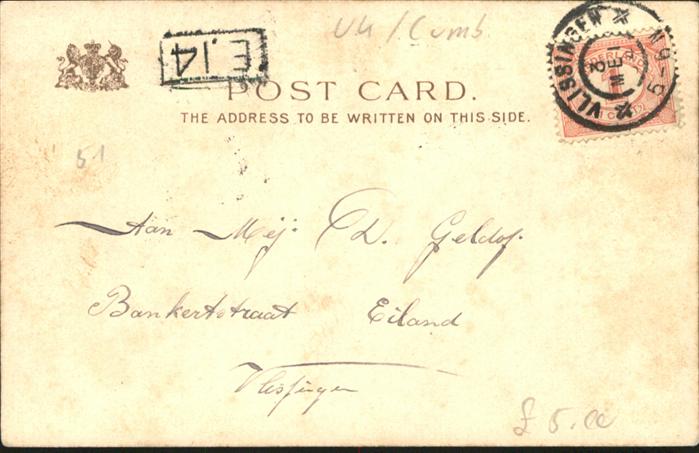 Uk/Cumb.
E.14
POST CARD.
THE ADDRESS TO BE WRITTEN ON THIS SIDE.
VLISSINGEN
2 MEI
5-6 N
1 CENT
51
Aan Mej. D. Geldof.
Bankertstraat Eiland
Vlissingen
£ 5.00